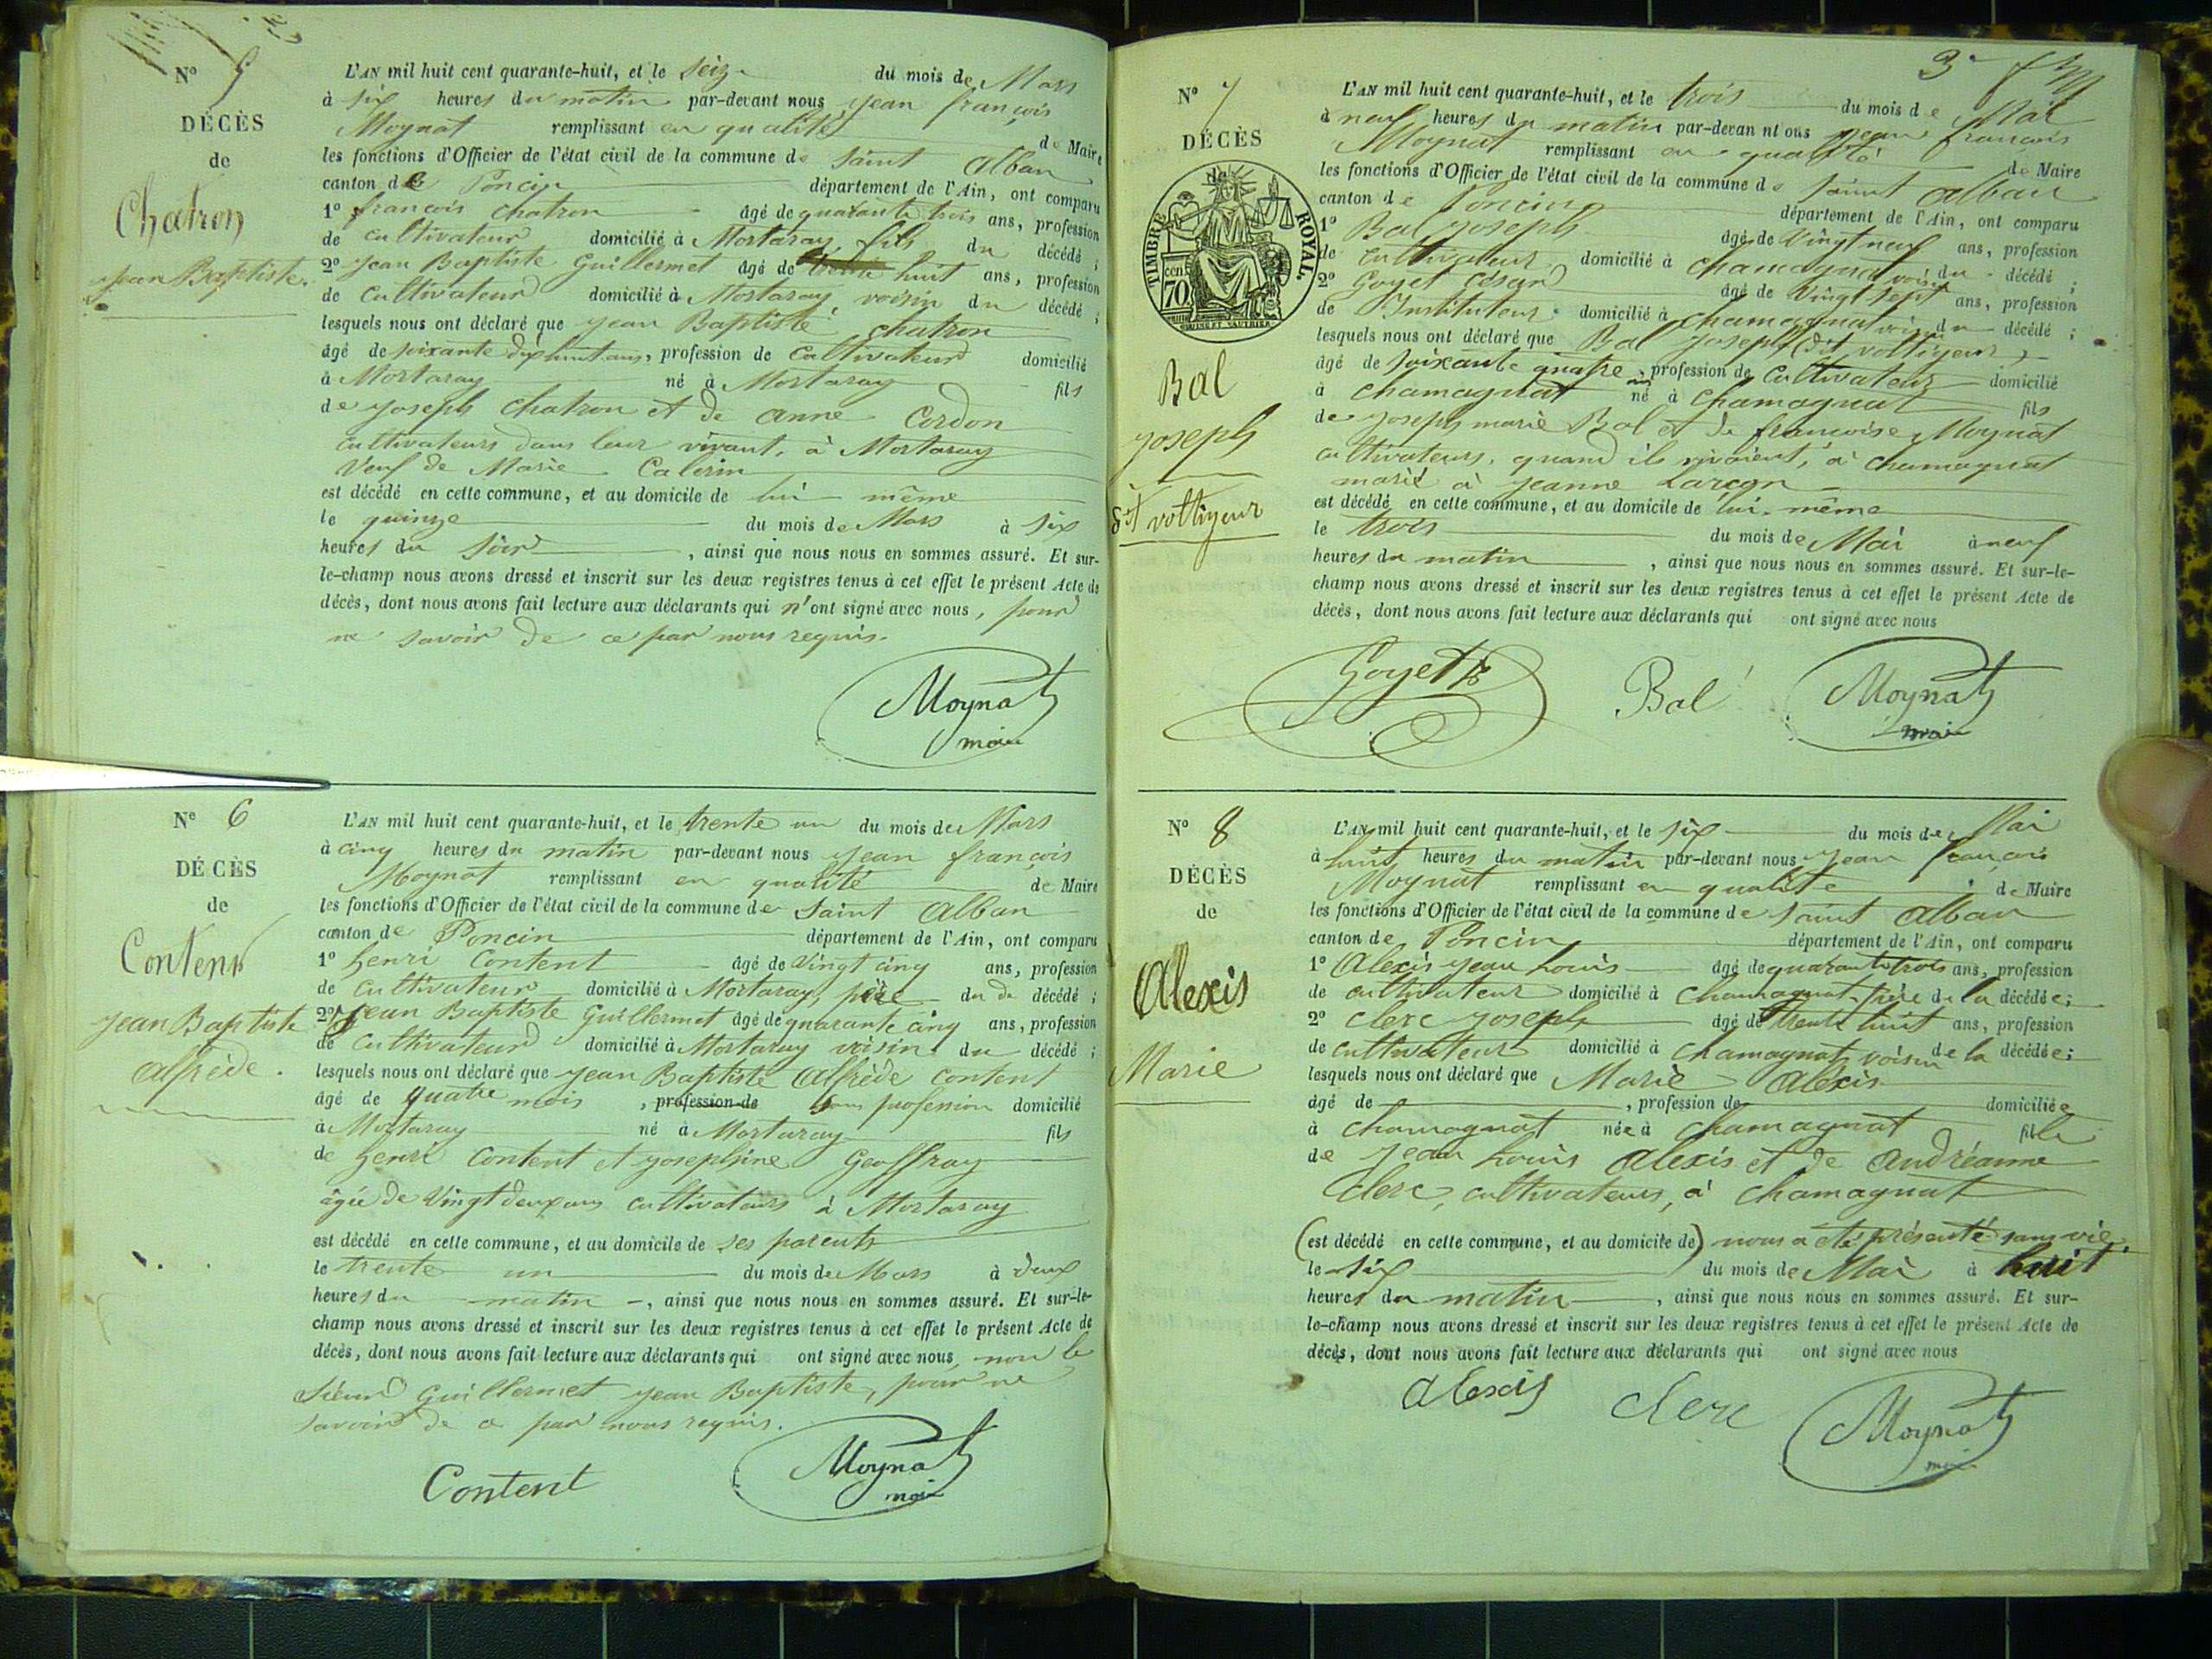 N° 5
DÉCÈS
de
Chatron
Jean Baptiste.
L'AN mil huit cent quarante-huit, et le seize du mois de Mars
à six heures du matin par-devant nous jean françois
Moynat remplissant en qualité de Maire
les fonctions d'Officier de l'état civil de la commune de saint alban
canton de Poncin département de l'Ain, ont comparu
1° françois chatron âgé de quarante trois ans, profession
de cultivateur domicilié à Mortaray, fils du décédé ;
2° jean Baptiste Guillermet âgé de huit ans, profession
de cultivateur domicilié à Mortaray voisin du décédé ;
lesquels nous ont déclaré que jean Baptiste chatron
âgé de soixante dix huit ans, profession de cultivateur domicilié
à Mortaray né à Mortaray fils
de joseph chatron et de anne Cordon
cultivateurs dans leur vivant, à Mortaray
veuf de Marie Calerin
est décédé en cette commune, et au domicile de lui même
le quinze du mois de Mars à six
heures du soir, ainsi que nous nous en sommes assuré. Et sur-
le-champ nous avons dressé et inscrit sur les deux registres tenus à cet effet le présent Acte de
décès, dont nous avons fait lecture aux déclarants qui n'ont signé avec nous, pour
ne savoir de ce par nous requis.
Moynat
maire
N° 6
DÉCÈS
de
Content
jean Baptiste
alfrède.
L'AN mil huit cent quarante-huit, et le trente un du mois de Mars
à cinq heures du matin par-devant nous jean françois
Moynat remplissant en qualité de Maire
les fonctions d'Officier de l'état civil de la commune de saint alban
canton de Poncin département de l'Ain, ont comparu
1° henri Content âgé de vingt cinq ans, profession
de cultivateur domicilié à Mortaray, père du décédé ;
2° jean Baptiste Guillermet âgé de quarante cinq ans, profession
de cultivateur domicilié à Mortaray voisin du décédé ;
lesquels nous ont déclaré que jean Baptiste alfrède content
âgé de quatre mois, profession de sans profession domicilié
à Mortaray né à Mortaray fils
de henri Content et josephine Geoffray
âgée de vingt deux ans cultivateurs à Mortaray
est décédé en cette commune, et au domicile de ses parents
le trente un du mois de Mars à deux
heures du matin, ainsi que nous nous en sommes assuré. Et sur-le-
champ nous avons dressé et inscrit sur les deux registres tenus à cet effet le présent Acte de
décès, dont nous avons fait lecture aux déclarants qui ont signé avec nous, non le
sieur Guillermet jean Baptiste, pour ne
savoir de ce par nous requis.
Content
Moynat
maire
3e
N° 7
DÉCÈS
de
TIMBRE ROYAL.
cen 70
Bal
joseph
dit voltigeur
L'AN mil huit cent quarante-huit, et le trois du mois de Mai
à neuf heures du matin par-devant nous jean françois
Moynat remplissant en qualité de Maire
les fonctions d'Officier de l'état civil de la commune de saint alban
canton de Poncin département de l'Ain, ont comparu
1° Bal joseph âgé de vingt neuf ans, profession
de cultivateur domicilié à chamagnat voisin du décédé ;
2° Goyet César âgé de vingt sept ans, profession
de Instituteur domicilié à chamagnat voisin du décédé ;
lesquels nous ont déclaré que Bal joseph (dit voltigeur)
âgé de soixante quatre ans, profession de cultivateur domicilié
à chamagnat né à chamagnat fils
de joseph marie Bal et de françoise Moynat
cultivateurs, quand ils vivaient, à chamagnat
marié à jeanne Larçon
est décédé en cette commune, et au domicile de lui-même
le trois du mois de Mai à neuf
heures du matin, ainsi que nous nous en sommes assuré. Et sur-le-
champ nous avons dressé et inscrit sur les deux registres tenus à cet effet le présent Acte de
décès, dont nous avons fait lecture aux déclarants qui ont signé avec nous
Goyet Bal Moynat
maire
N° 8
DÉCÈS
de
Alexis
Marie
L'AN mil huit cent quarante-huit, et le six du mois de Mai
à huit heures du matin par-devant nous jean françois
Moynat remplissant en qualité de Maire
les fonctions d'Officier de l'état civil de la commune de saint alban
canton de Poncin département de l'Ain, ont comparu
1° Alexis jean Louis âgé de quarante trois ans, profession
de cultivateur domicilié à chamagnat, père de la décédée;
2° clerc joseph âgé de trente huit ans, profession
de cultivateur domicilié à chamagnat voisin de la décédée;
lesquels nous ont déclaré que Marie Alexis
âgé de , profession de domiciliée
à chamagnat née à chamagnat fille
de jean Louis Alexis et de andréanne
clerc, cultivateurs, à chamagnat
(est décédé en cette commune, et au domicile de) nous a été présenté sans vie,
le six du mois de Mai à huit
heures du matin, ainsi que nous nous en sommes assuré. Et sur-
le-champ nous avons dressé et inscrit sur les deux registres tenus à cet effet le présent Acte de
décès, dont nous avons fait lecture aux déclarants qui ont signé avec nous
alexis clerc Moynat
maire